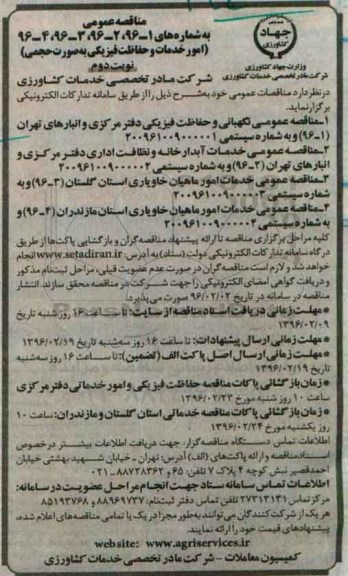 مناقصه عمومی
به شماره های ۱-۹۶، ۲-۹۶، ۳-۹۶، ۴-۹۶
(امور خدمات و حفاظت فیزیکی به صورت حجمی)
نوبت دوم
جهاد
کشاورزی
وزارت جهاد کشاورزی
شرکت مادر تخصصی خدمات کشاورزی
شرکت مادر تخصصی خدمات کشاورزی
در نظر دارد مناقصات عمومی خود به شرح ذیل را از طریق سامانه تدارکات الکترونیکی
برگزار نماید.
۱-مناقصه عمومی نگهبانی و حفاظت فیزیکی دفتر مرکزی و انبارهای تهران
(۱-۹۶) و به شماره سیستمی ۲۰۰۹۶۱۰۰۹۰۰۰۰۰۱
۲-مناقصه عمومی خدمات آبدارخانه و نظافت اداری دفتر مرکزی و
انبارهای تهران (۲-۹۶) و به شماره سیستمی ۲۰۰۹۶۱۰۰۹۰۰۰۰۰۲
۳-مناقصه عمومی خدمات امور ماهیان خاویاری استان گلستان (۳-۹۶) و به
شماره سیستمی ۲۰۰۹۶۱۰۰۹۰۰۰۰۰۳
۴-مناقصه عمومی خدمات امور ماهیان خاویاری استان مازندران (۴-۹۶) و
به شماره سیستمی
کلیه مراحل برگزاری مناقصه تا ارائه پیشنهاد مناقصه گران و بازگشایی پاکت ها از طریق
درگاه سامانه تدارکات الکترونیکی دولت (ستاد) به آدرس: www.setadiran.ir انجام
خواهد شد و لازم است مناقصه گران در صورت عدم عضویت قبلی، مراحل ثبت نام مذکور
و دریافت گواهی امضای الکترونیکی را جهت شرکت در مناقصه محقق سازند. انتشار
مناقصه در سامانه در تاریخ ۹۶/۰۲/۰۲ صورت می پذیرد.
*مهلت زمانی دریافت اسناد مناقصه از سایت: تا ساعت ۱۶ روز شنبه تاریخ
۱۳۹۶/۰۲/۰۹
*مهلت زمانی ارسال پیشنهادات: تا ساعت ۱۶ روز سه شنبه تاریخ ۱۳۹۶/۰۲/۱۹
*مهلت زمانی ارسال اصل پاکت الف (تضمین): تا ساعت ۱۶ روز سه شنبه
تاریخ ۱۳۹۶/۰۲/۱۹
*زمان بازگشائی پاکات مناقصه حفاظت فیزیکی و امور خدماتی دفتر مرکزی
ساعت ۱۰ روز شنبه مورخ ۱۳۹۶/۰۲/۲۳
*زمان بازگشائی پاکات مناقصه خدماتی استان گلستان و مازندران: ساعت ۱۰
روز یکشنبه مورخ ۱۳۹۶/۰۲/۲۴
اطلاعات تماس دستگاه مناقصه گزار، جهت دریافت اطلاعات بیشتر در خصوص
اسناد مناقصه و ارائه پاکت های (الف) آدرس: تهران - خیابان شهید بهشتی خیابان
احمد قصیر نبش کوچه ۴ پلاک ۷ تلفن: ۶۵ و ۸۸۷۲۸۳۶۲ - ۰۲۱
اطلاعات تماس سامانه ستاد جهت انجام مراحل عضویت در سامانه:
مرکز تماس ۲۷۳۱۳۱۳۱ تلفن تماس دفتر ثبت نام: ۸۸۹۶۹۷۳۷ و ۸۵۱۹۳۷۶۸
هر یک از شرکت کنندگان می توانند به طور مجزا در یک یا تمامی مناقصه های اعلام شده،
پیشنهادهای قیمت خود را ارائه نمایند.
website: www.agriservices.ir
کمیسیون معاملات - شرکت مادر تخصصی خدمات کشاورزی